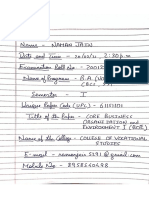 Name - NAMAN JAIN
Date and Time - 20/03/21, 2:30 p.m
Examination Roll No - 20012
Name of Program - B.A (VOCATIONAL)
Semester - I
Unique Paper Code (UPC) - 61111101
Title of the Paper - CORE BUSINESS
ORGANISATION AND
ENVIRONMENT I
Name of the College - COLLEGE OF VOCATIONAL
STUDIES
E-mail - @gmail.com
Mobile No - 8958640698